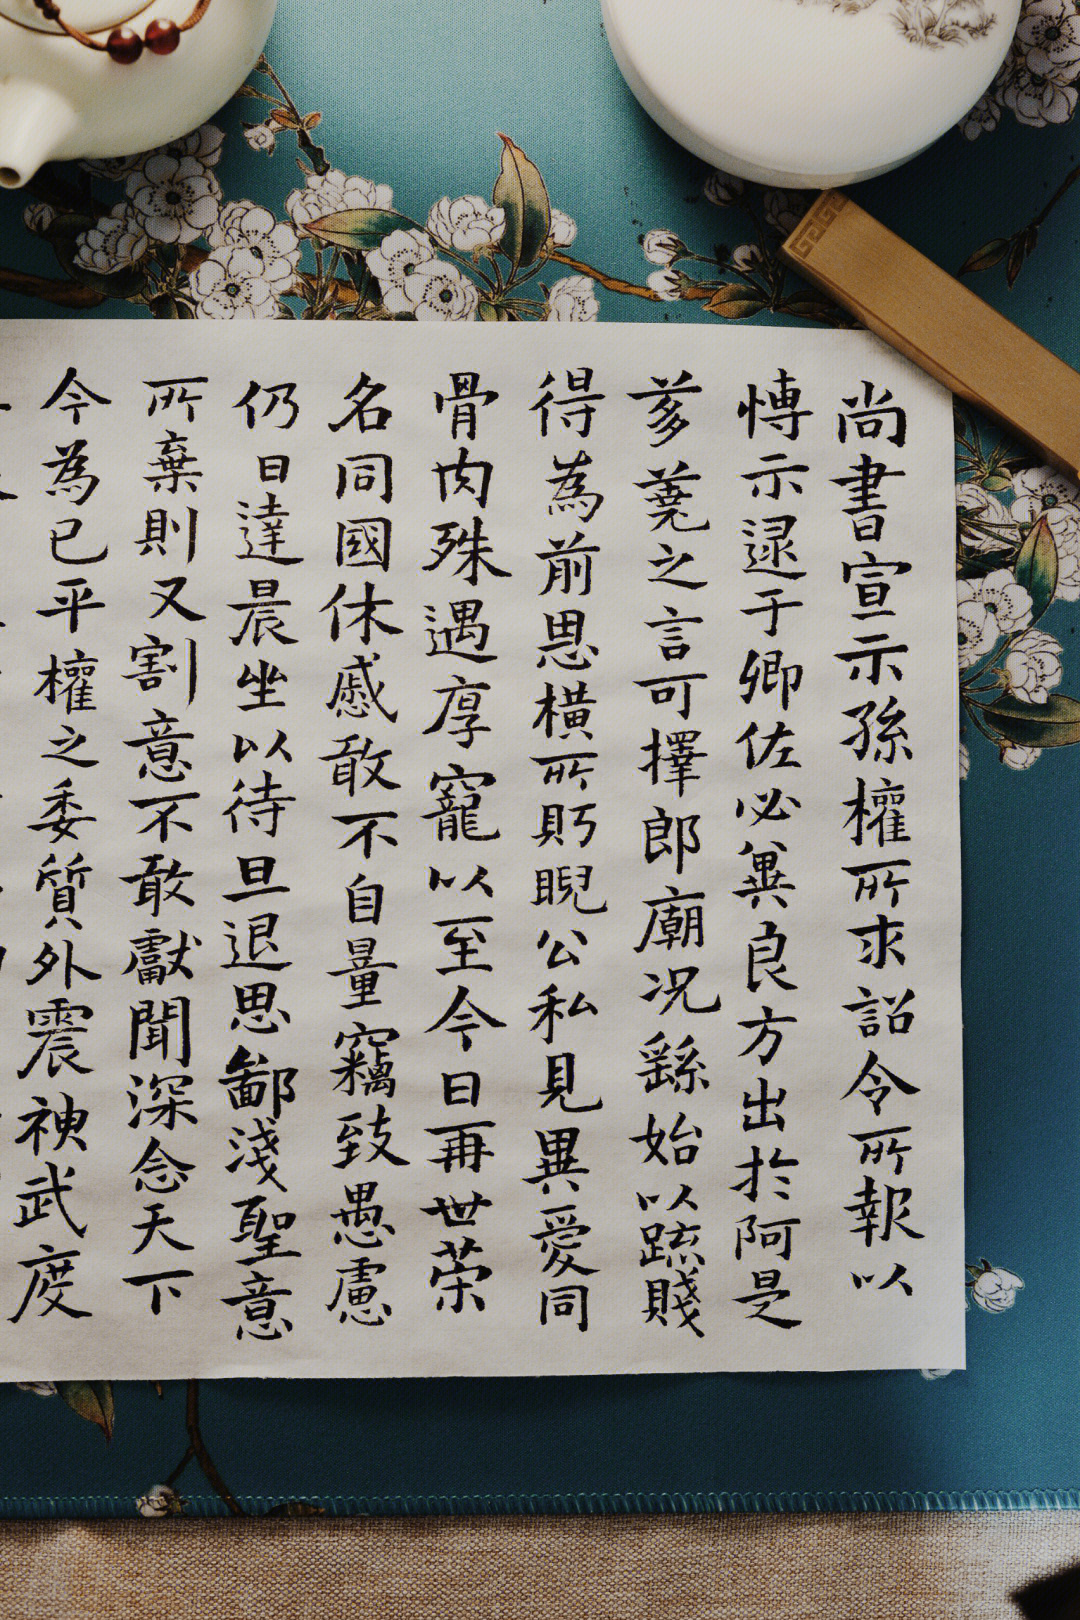 尚書宣示孫權所求詔令所報以
愽示逯于卿佐必兾良方出於阿是
芻蕘之言可擇郎廟况繇始以踈賤
得為前恩橫所眄睨公私見異愛同
骨肉殊遇厚寵以至今日再世荣
名同國休慼敢不自量竊致愚慮
仍日達晨坐以待旦退思鄙淺聖意
所棄則又割意不敢獻聞深念天下
今為已平權之委質外震神武度